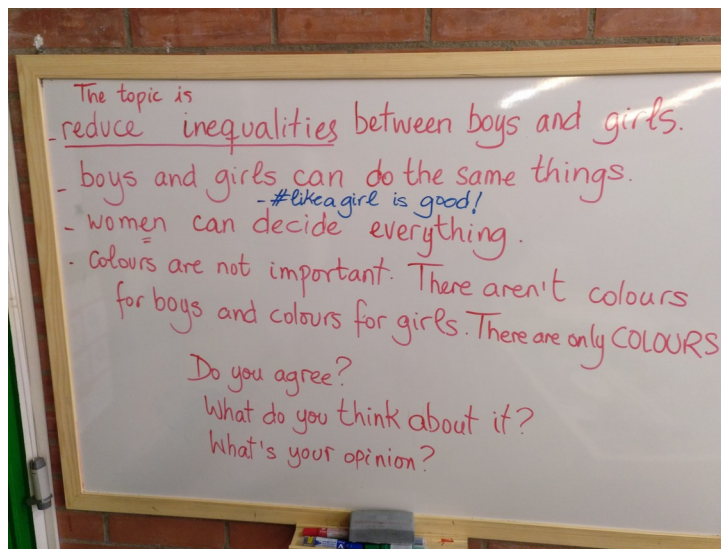 The topic is
- reduce inequalities between boys and girls.
- boys and girls can do the same things.
- #likeagirl is good!
- women can decide everything.
- Colours are not important. There aren't colours
for boys and colours for girls. There are only COLOURS
Do you agree?
What do you think about it?
What's your opinion?